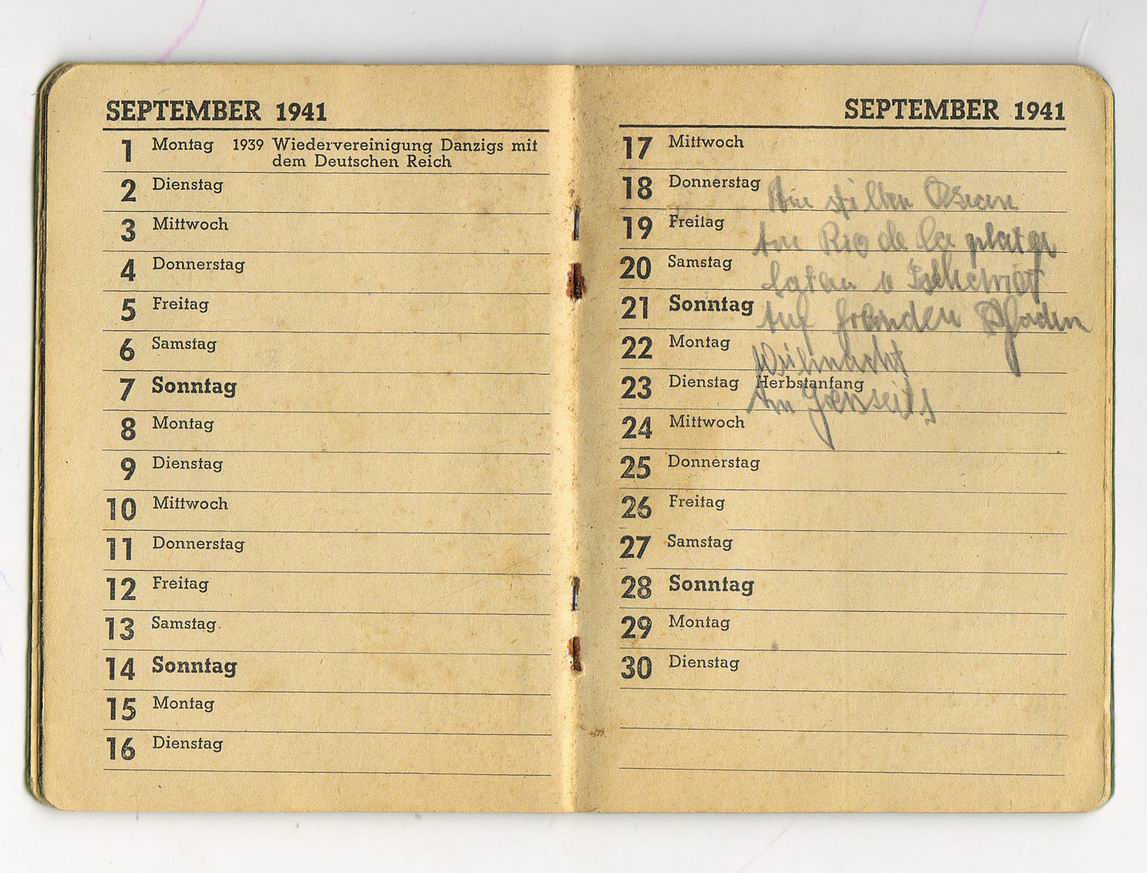 SEPTEMBER 1941
1 Montag 1939 Wiedervereinigung Danzigs mit
dem Deutschen Reich
2 Dienstag
3 Mittwoch
4 Donnerstag
5 Freitag
6 Samstag
7 Sonntag
8 Montag
9 Dienstag
10 Mittwoch
11 Donnerstag
12 Freitag
13 Samstag
14 Sonntag
15 Montag
16 Dienstag
SEPTEMBER 1941
17 Mittwoch
18 Donnerstag
Am stillen Ozean
19 Freitag
Am Rio de la plata
20 Samstag
Satan
21 Sonntag
Auf fremden Pfaden
22 Montag
Weihnacht
23 Dienstag Herbstanfang
Am Jenseits
24 Mittwoch
25 Donnerstag
26 Freitag
27 Samstag
28 Sonntag
29 Montag
30 Dienstag